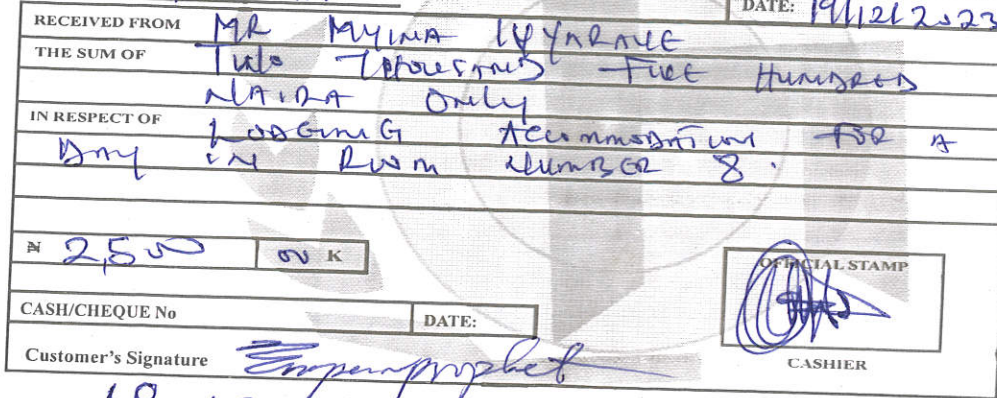 DATE: 19/12/2023
RECEIVED FROM MR
THE SUM OF Two Thousand Five Hundred
Naira Only
IN RESPECT OF Lodging Accommodation for a
Day in Room Number 8.
₦ 2,500 00 K
OFFICIAL STAMP
CASH/CHEQUE No DATE:
Customer's Signature
CASHIER